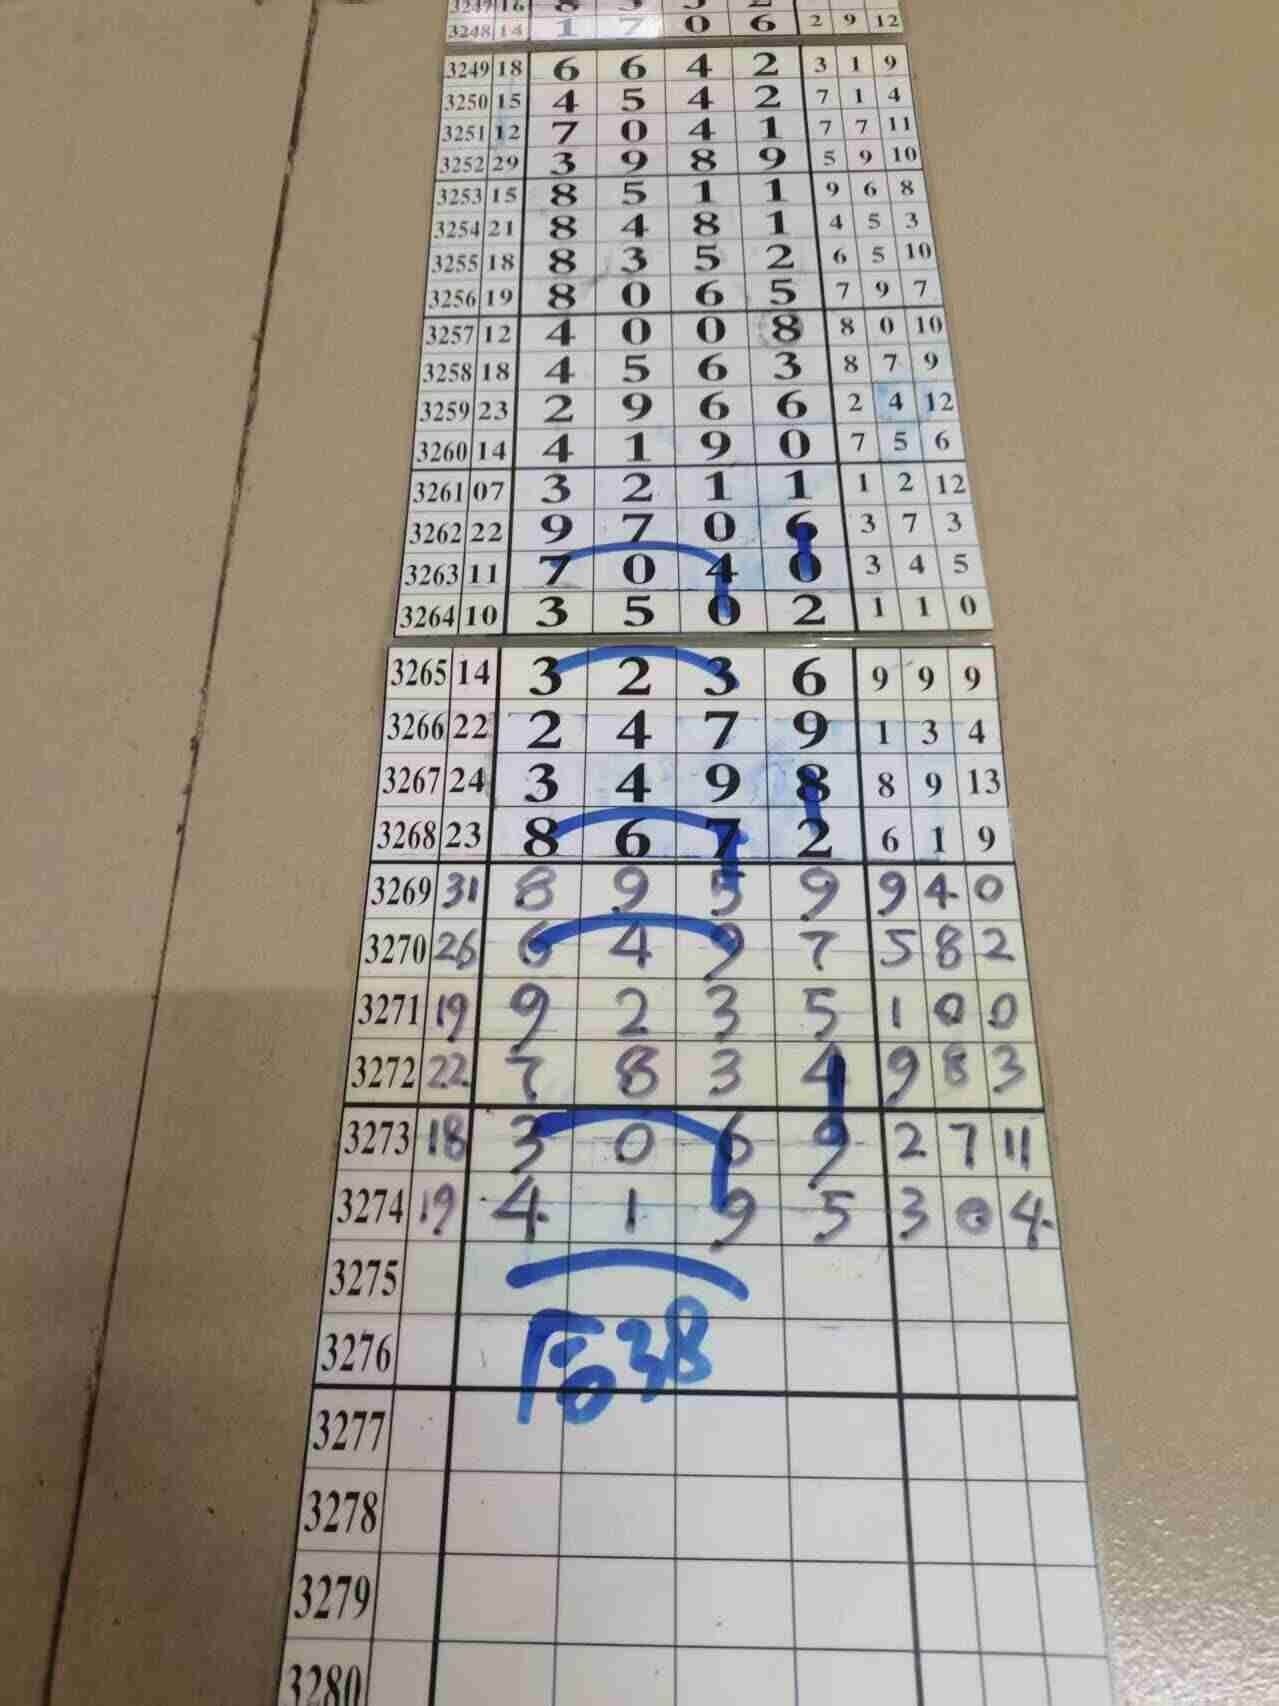 3247 16 8 3 3 2
3248 14 1 7 0 6 2 9 12
3249 18 6 6 4 2 3 1 9
3250 15 4 5 4 2 7 1 4
3251 12 7 0 4 1 7 7 11
3252 29 3 9 8 9 5 9 10
3253 15 8 5 1 1 9 6 8
3254 21 8 4 8 1 4 5 3
3255 18 8 3 5 2 6 5 10
3256 19 8 0 6 5 7 9 7
3257 12 4 0 0 8 8 0 10
3258 18 4 5 6 3 8 7 9
3259 23 2 9 6 6 2 4 12
3260 14 4 1 9 0 7 5 6
3261 07 3 2 1 1 1 2 12
3262 22 9 7 0 6 3 7 3
3263 11 7 0 4 0 3 4 5
3264 10 3 5 0 2 1 1 0
3265 14 3 2 3 6 9 9 9
3266 22 2 4 7 9 1 3 4
3267 24 3 4 9 8 8 9 13
3268 23 8 6 7 2 6 1 9
3269 31 8 9 5 9 9 4 0
3270 26 6 4 9 7 5 8 2
3271 19 9 2 3 5 1 0 0
3272 22 7 8 3 4 9 8 3
3273 18 3 0 6 9 2 7 11
3274 19 4 1 9 5 3 0 4
3275
3276 38
3277
3278
3279
3280